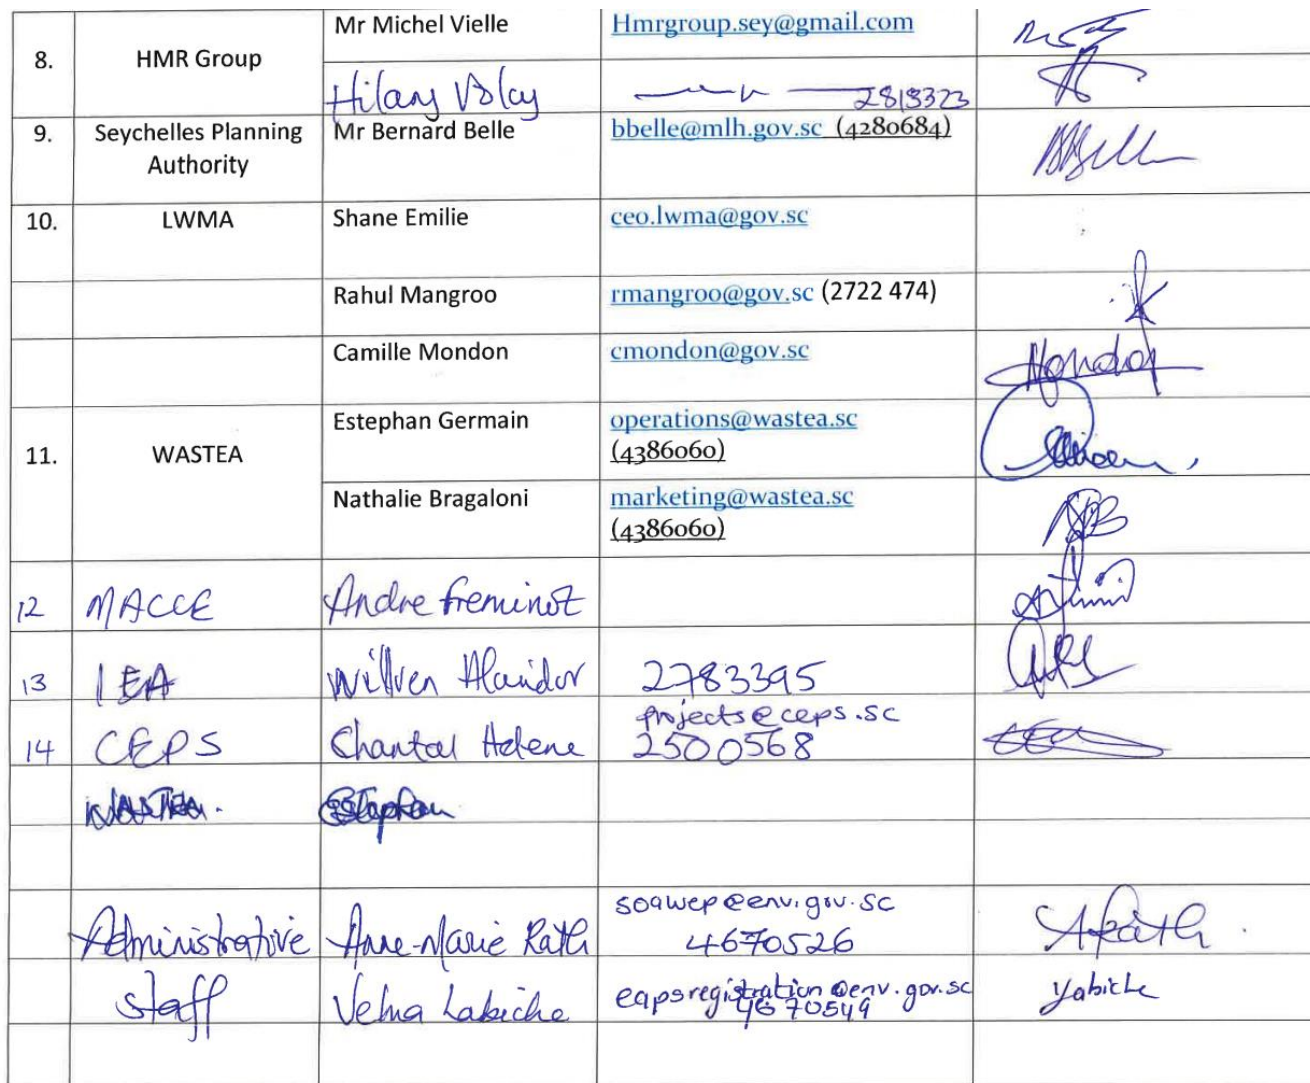 8. HMR Group Mr Michel Vielle Hmrgroup.sey@gmail.com
Hilary 2818323
9. Seychelles Planning Authority Mr Bernard Belle bbelle@mlh.gov.sc (4280684)
10. LWMA Shane Emilie ceo.lwma@gov.sc
Rahul Mangroo rmangroo@gov.sc (2722 474)
Camille Mondon cmondon@gov.sc
11. WASTEA Estephan Germain operations@wastea.sc
(4386060)
Nathalie Bragaloni marketing@wastea.sc
(4386060)
12 MACCE Andre Freminot
13 IEA 2783395
projects@ceps.sc
14 CEPS Chantal Helene 2500568
WASTEA.
soawep@env.gov.sc
Administrative Anne-Marie Rath 4670526
staff Velna Labiche eapsregistration@env.gov.sc
4670549